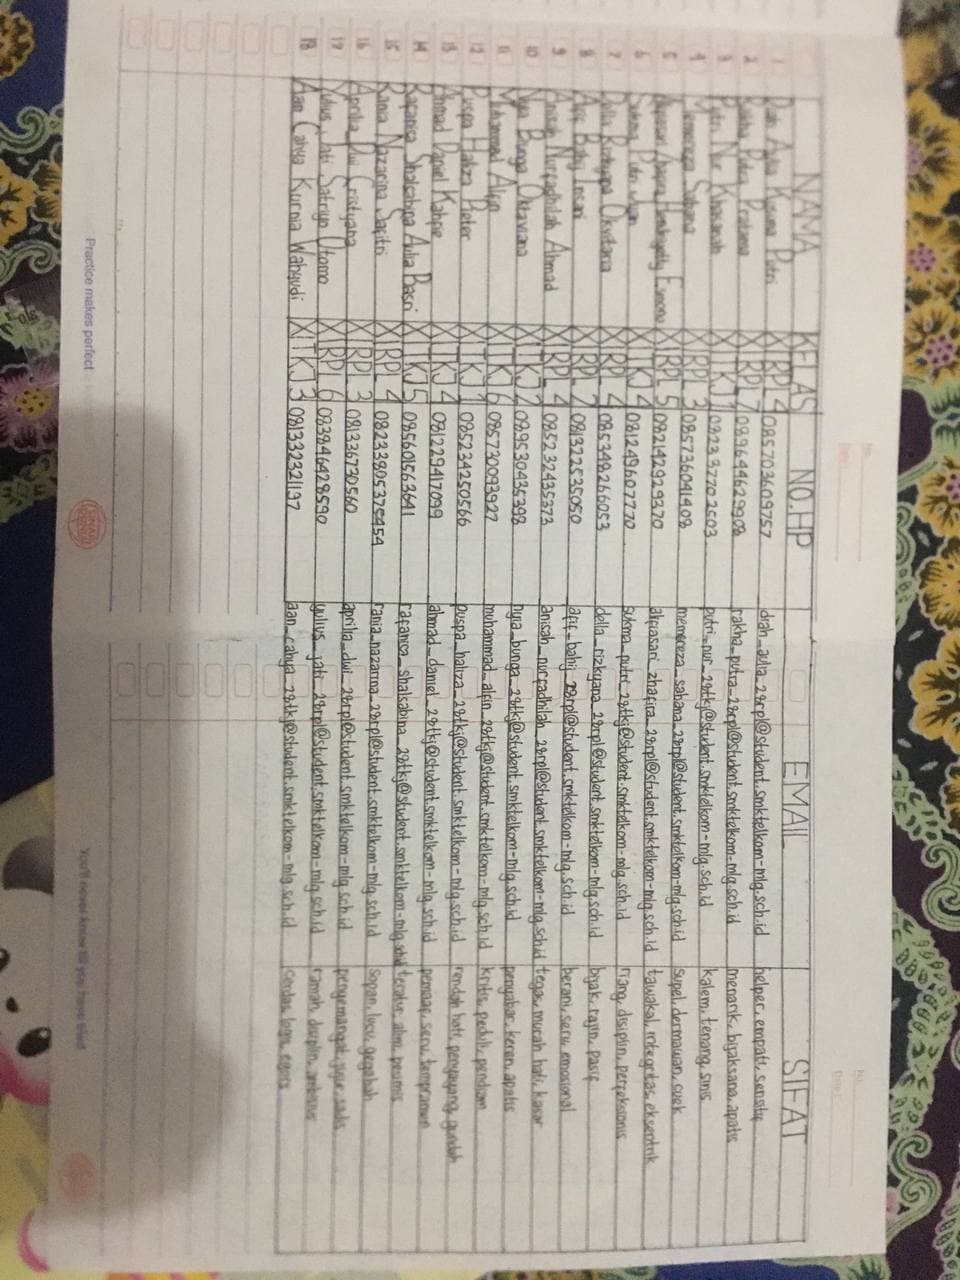 NAMA KELAS NO.HP EMAIL SIFAT
1 Diah Aulia Kusuma Putri XI RPL 4 085703609757 diah_aulia_28rpl@student.smktelkom-mlg.sch.id helper, empati, sensitif
2 Rakha Putra Pratama XI RPL 7 089644629908 rakha_putra_28rpl@student.smktelkom-mlg.sch.id menarik, bijaksana, apatis
3 Putri Nur Khasanah XI TKJ 1 putri_nur_28tkj@student.smktelkom-mlg.sch.id kalem, tenang, sinis
4 Memereza Sabana XI RPL 3 085736041408 memereza_sabana_28rpl@student.smktelkom-mlg.sch.id supel, dermawan, cuek
5 XI RPL 5 082142329370 zhafira_28rpl@student.smktelkom-mlg.sch.id tawakal, integritas, eksentrik
6 Sukma Putri XI TKJ 4 081249607770 sukma_putri_28tkj@student.smktelkom-mlg.sch.id riang, disiplin, perfeksionis
7 Della Rizkyana Okvitaria XI RPL 4 085348266053 della_rizkyana_28rpl@student.smktelkom-mlg.sch.id bijak, rajin, pasif
8 Afif Bahij XI RPL 081322535050 afif_bahij_28rpl@student.smktelkom-mlg.sch.id berani, seru, emosional
9 Anisah Nurfadhilah Ahmad XI RPL 4 085232435373 anisah_nurfadhilah_28rpl@student.smktelkom-mlg.sch.id tegas, murah hati, kasar
10 Bunga Oktaviana XI TKJ 2 089530435398 bunga_28tkj@student.smktelkom-mlg.sch.id penyabar, keren, apatis
11 Muhammad Alfin XI TKJ 6 085730093927 muhammad_alfin_28tkj@student.smktelkom-mlg.sch.id kritis, peduli, pendiam
12 Puspa Haliza Pieter XI TKJ 1 085234250566 puspa_haliza_28tkj@student.smktelkom-mlg.sch.id rendah hati, penyayang, gundah
13 Ahmad Daniel Kahpie XI TKJ 4 081229417099 ahmad_daniel_28tkj@student.smktelkom-mlg.sch.id pemaaf, seru, tempramen
14 Rafanica Shalsabina Aulia Basri XI TKJ 5 085601563641 rafanica_shalsabina_28tkj@student.smktelkom-mlg.sch.id teratur, ahli, pesimis
15 Rania Nazarina Safitri XI RPL 4 rania_nazarina_28rpl@student.smktelkom-mlg.sch.id sopan, lucu, gegabah
16 Aprilia Dwi Cristyana XI RPL 3 081336730560 aprilia_dwi_28rpl@student.smktelkom-mlg.sch.id penyemangat, jujur, sadis
17 Yulius Jati Satriyo Utomo XI RPL 6 083846428590 yulius_jati_28rpl@student.smktelkom-mlg.sch.id ramah, disiplin, ambisius
18 Aan Cahya Kurnia Wahyudi XI TKJ 3 081332321197 aan_cahya_28tkj@student.smktelkom-mlg.sch.id cerdas, logis, egois
Practice makes perfect
You'll never know till you have tried